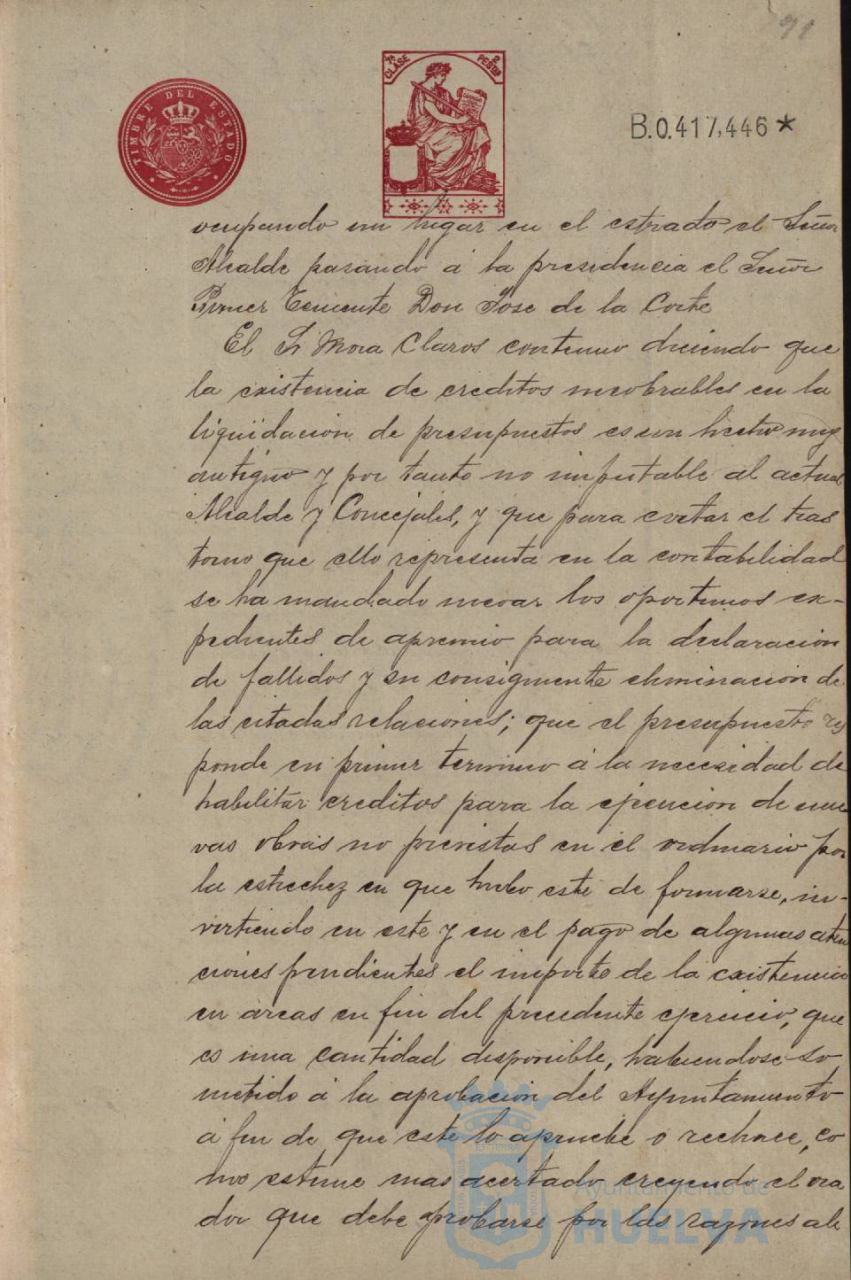 91
TIMBRE DEL ESTADO
7ª CLASE 2 PESTAS
B.0.417,446 *
ocupando un lugar en el estrado el Señor
Alcalde pasando á la presidencia el Señor
Primer Teniente Don Jose de la Corte
El Sr Mora Claros continuo diciendo que
la existencia de creditos incobrables en la
liquidacion de presupuestos es un hecho muy
antiguo y por tanto no imputable al actual
Alcalde y Concejales, y que para evitar el tras
torno que ello representa en la contabilidad
se ha mandado incoar los oportunos ex-
pedientes de apremio para la declaracion
de fallidos y su consiguiente eliminacion de
las citadas relaciones; que el presupuesto res
ponde en primer termino á la necesidad de
habilitar creditos para la ejecucion de nue
vas obras no previstas en el ordinario por
la estrechez en que hubo este de formarse, in-
virtiendo en este y en el pago de algunas aten
ciones pendientes el importe de la existencia
en arcas en fin del precedente ejercicio, que
es una cantidad disponible, habiendose so
metido á la aprobacion del Ayuntamiento
á fin de que este lo apruebe o rechace, co
mo estime mas acertado creyendo el ora
dor que debe aprobarse por las razones ale
Ayuntamiento de
HUELVA